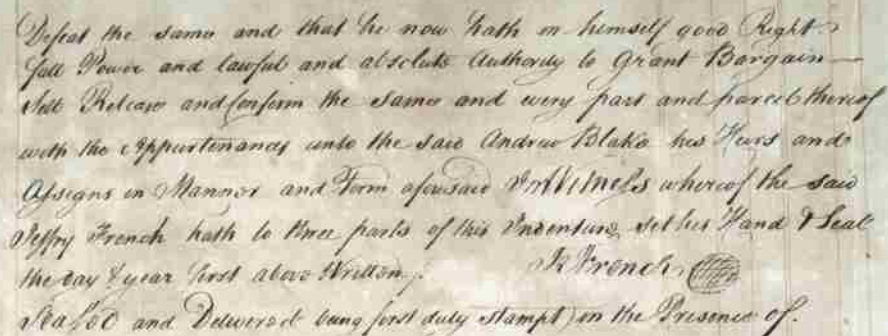 Defeat the same and that he now hath in himself good Right
full Power and lawful and absolute Authority to Grant Bargain
Sell Release and Confirm the same and every part and parcel thereof
with the Appurtenances unto the said Andrew Blake his Heirs and
Assigns in Manner and Form aforesaid In Witness whereof the said
Jeffry French hath to three parts of this Indenture set his Hand & Seal
the day & year first above Written.
Jef French
Sealed and Delivered (being first duly Stampt) in the Presence of.